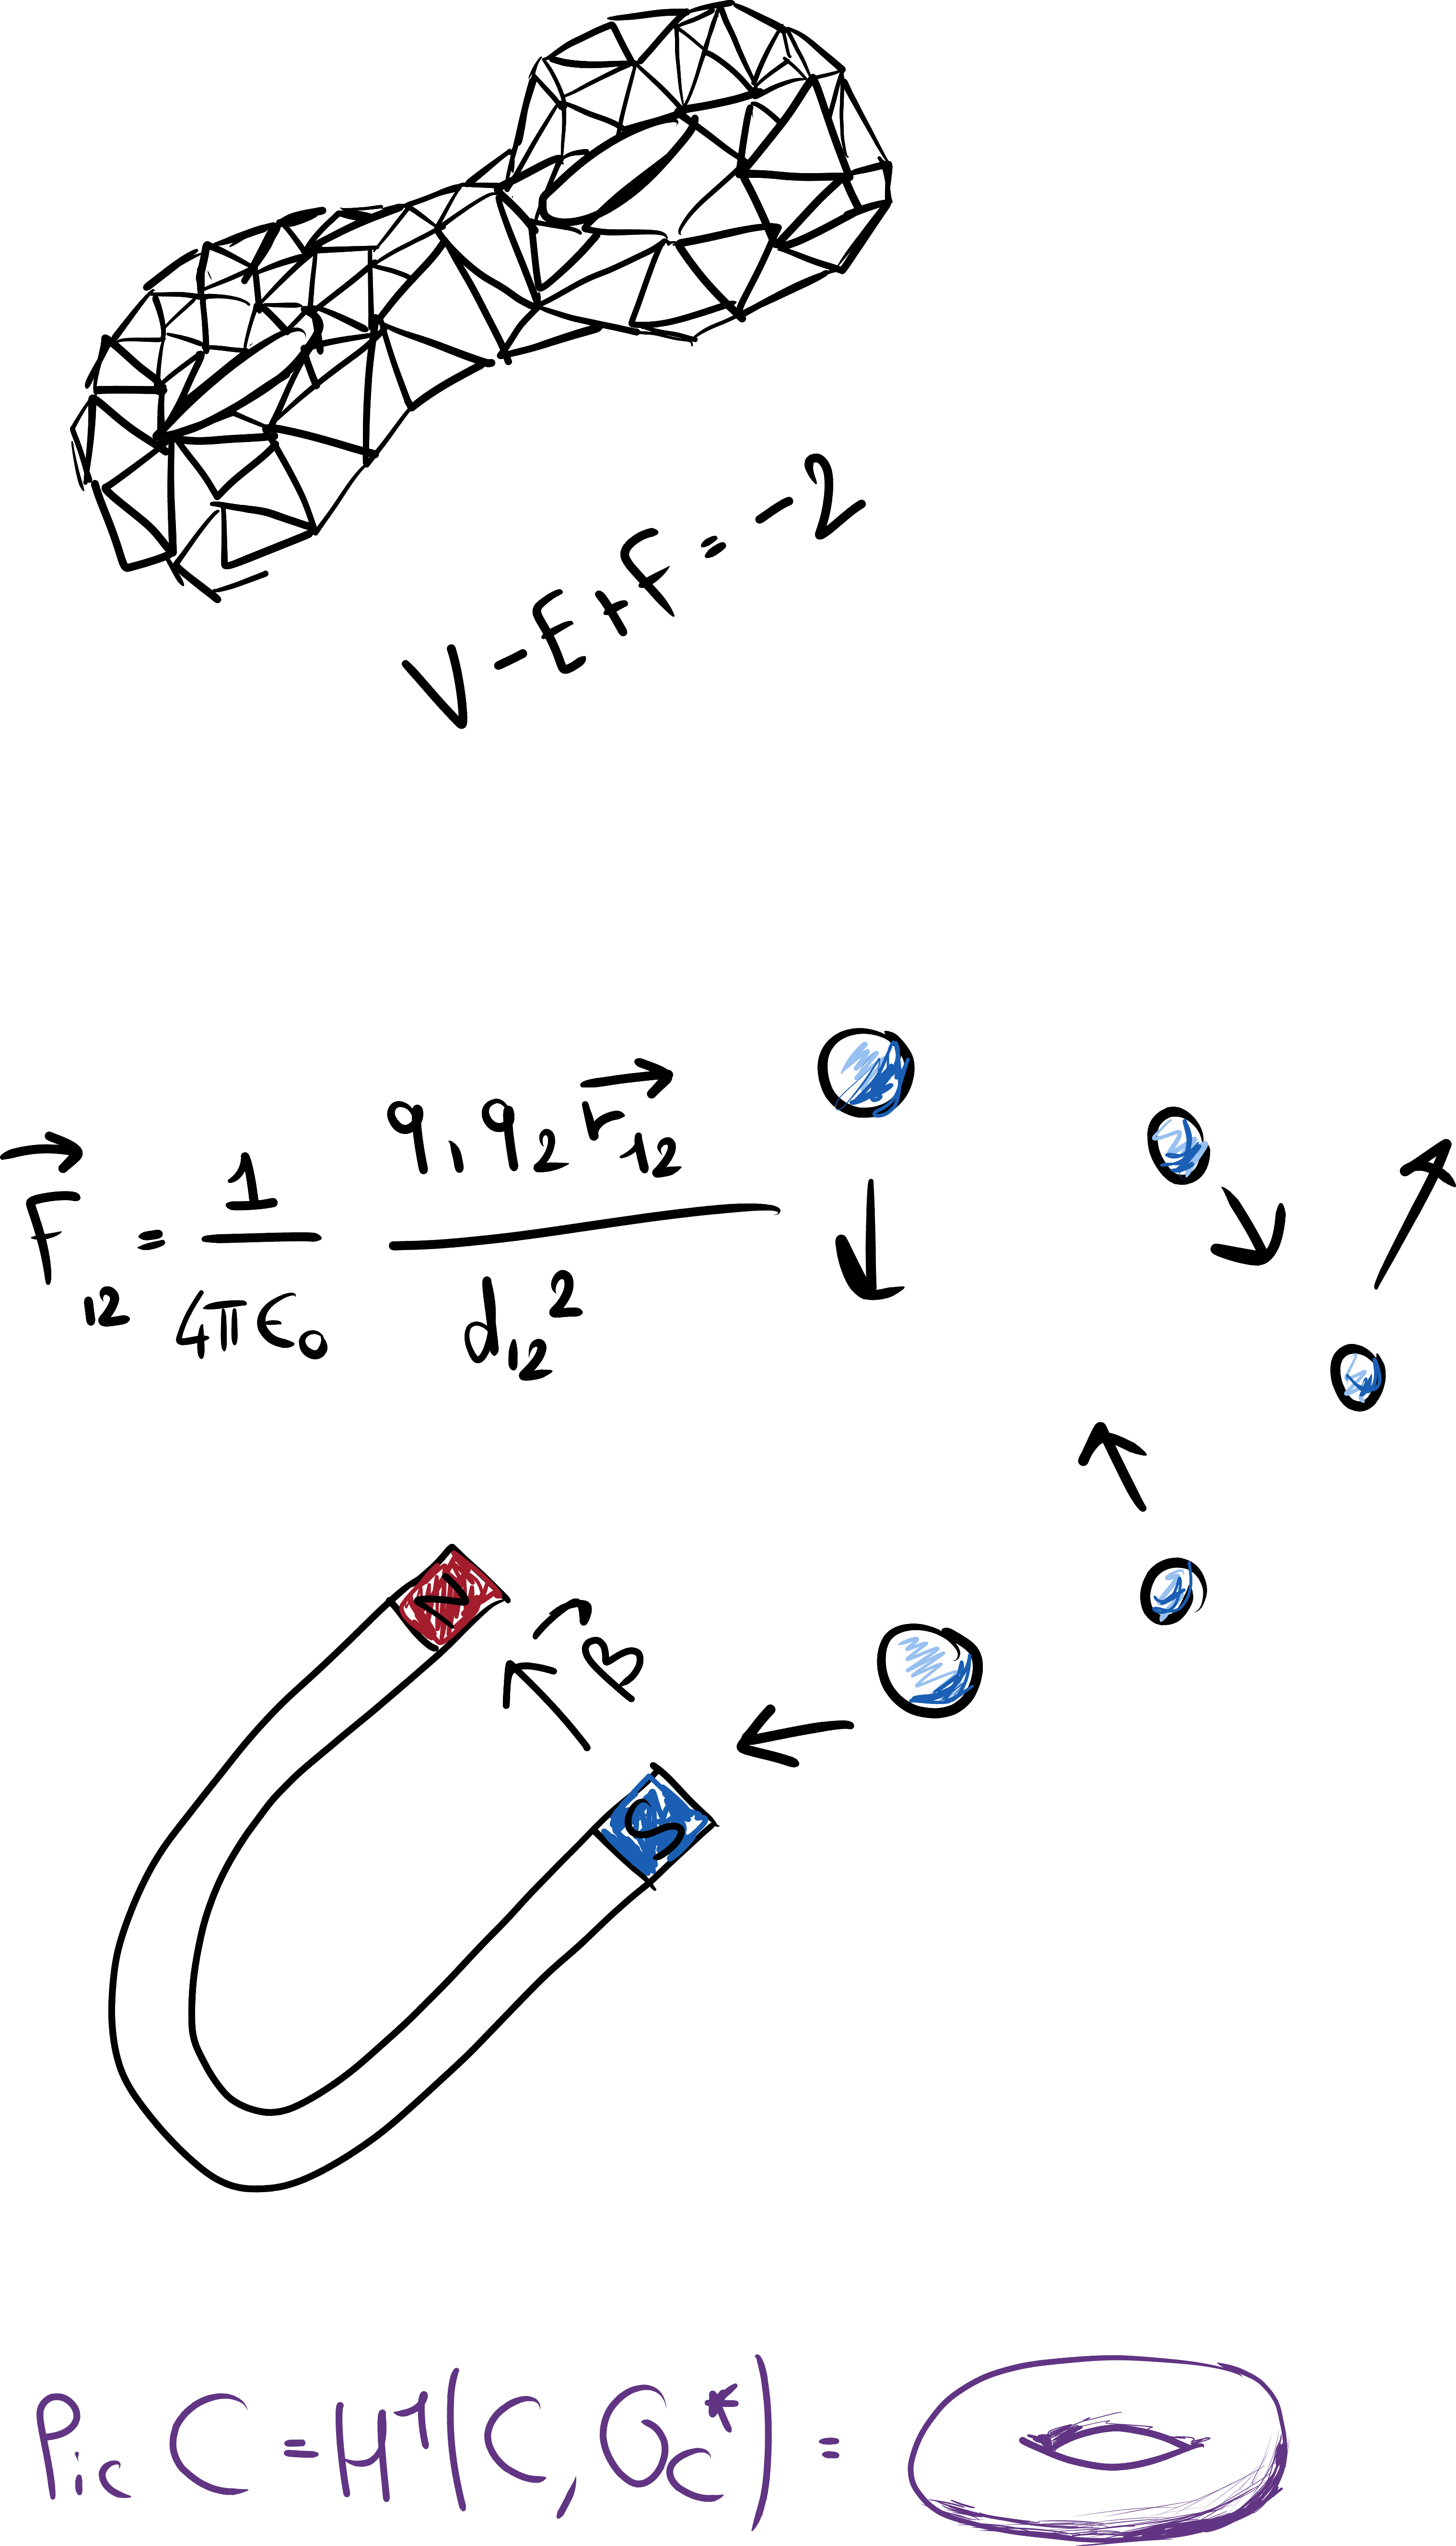 V - E + F = -2
→F₁₂ = 1/4πϵ₀ q₁q₂→r₁₂/d₁₂²
N
→B
S
Pic C = H¹(C, O_C*) =